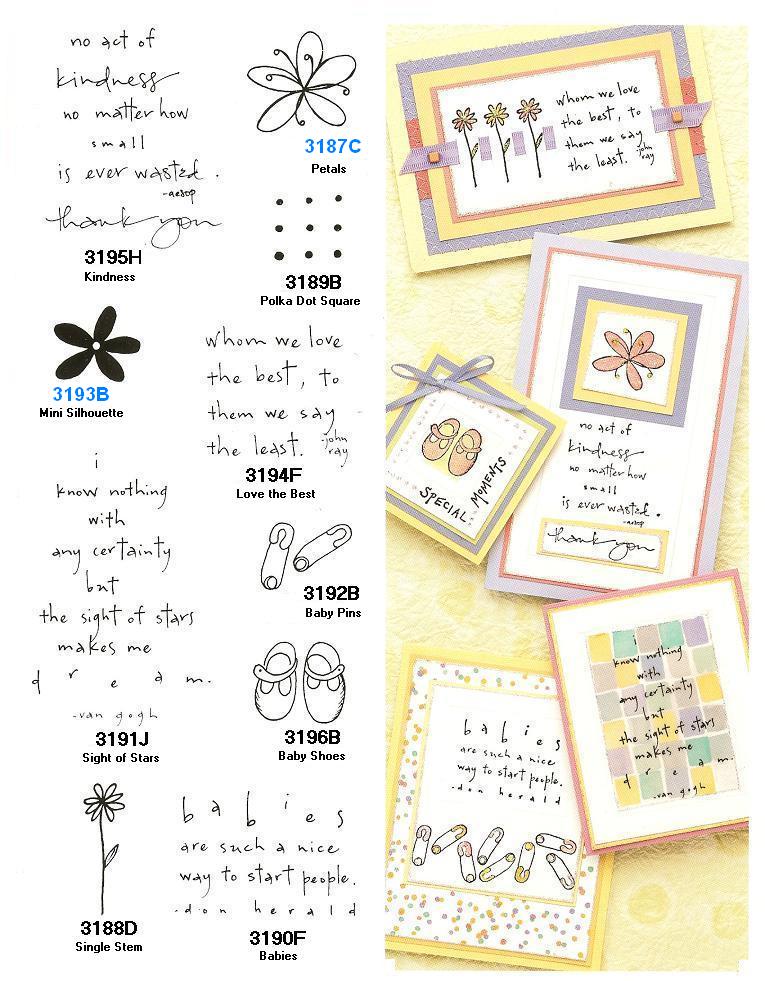 no act of
kindness
no matter how
small
is ever wasted.
-aesop
thank you
3195H
Kindness
3187C
Petals
3189B
Polka Dot Square
3193B
Mini Silhouette
whom we love
the best, to
them we say
the least. -john
ray
3194F
Love the Best
i
know nothing
with
any certainty
but
the sight of stars
makes me
d r e a m.
-van gogh
3191J
Sight of Stars
3192B
Baby Pins
3196B
Baby Shoes
3188D
Single Stem
babies
are such a nice
way to start people.
-don herald
3190F
Babies
whom we love
the best, to
them we say
the least. -john
ray
no act of
kindness
no matter how
small
is ever wasted.
-aesop
thank you
SPECIAL MOMENTS
i
know nothing
with
any certainty
but
the sight of stars
makes me
d r e a m.
-van gogh
babies
are such a nice
way to start people.
-don herald